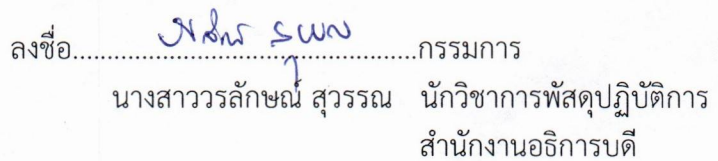 ลงชื่อ..........................................กรรมการ
นางสาววรลักษณ์ สุวรรณ นักวิชาการพัสดุปฏิบัติการ
สำนักงานอธิการบดี